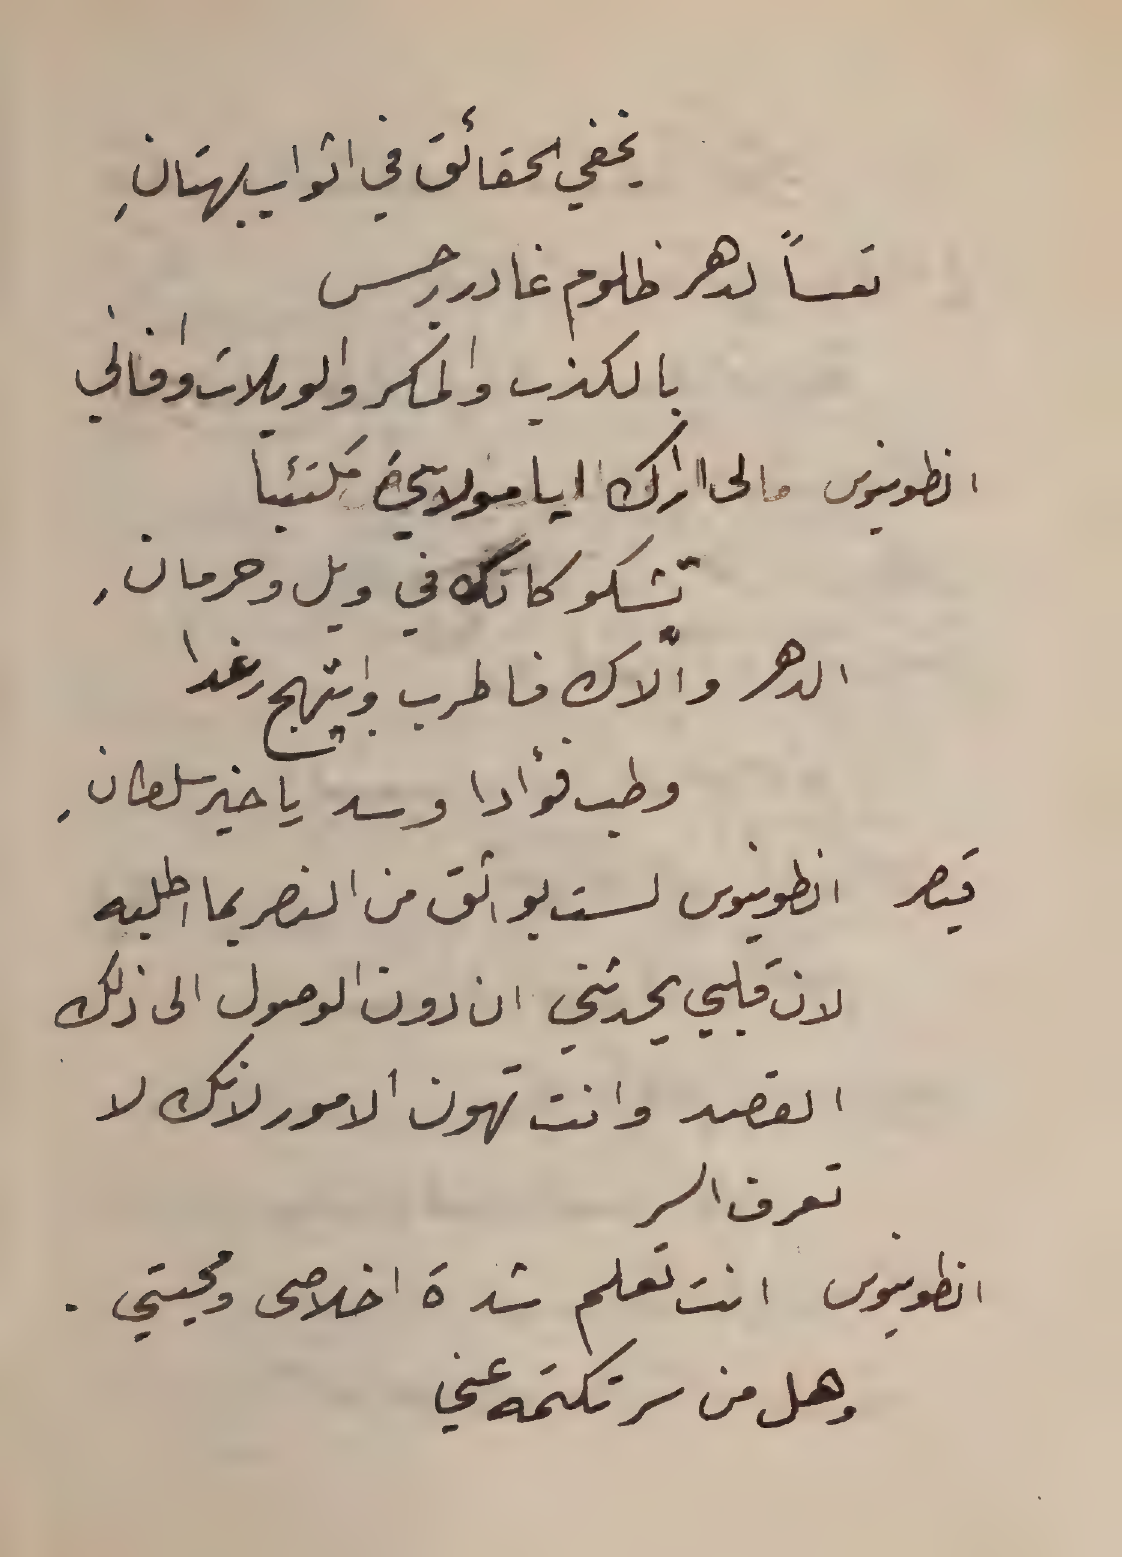 يخفي الحقائق في اثواب بهتانِ
تعساً لدهر ظلوم غادر رجس
بالكذب والمكر والويلات وافاني
انطونيوس مالى اراك ايا مولاي مكتئباً
تشكو كانك في ويل وحرمانِ
الدهر والاك فاطرب وابتهج رغدا
وطب فؤادا وسد يا خير سلطانِ
قيصر انطونيوس لست بواثق من النصر بما اطلبه
لان قلبي يحدثني ان دون الوصول الى ذلك
القصد وانت تهون الامور لانك لا
تعرف السر
انطونيوس انت تعلم شدة اخلاصى ومحبتي .
وهل من سر تكتمه عني